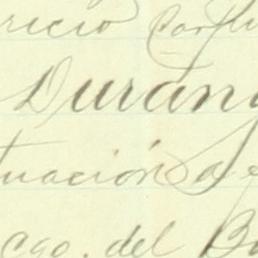 ricio Porfi
Durán
tuación de
cgo. del B